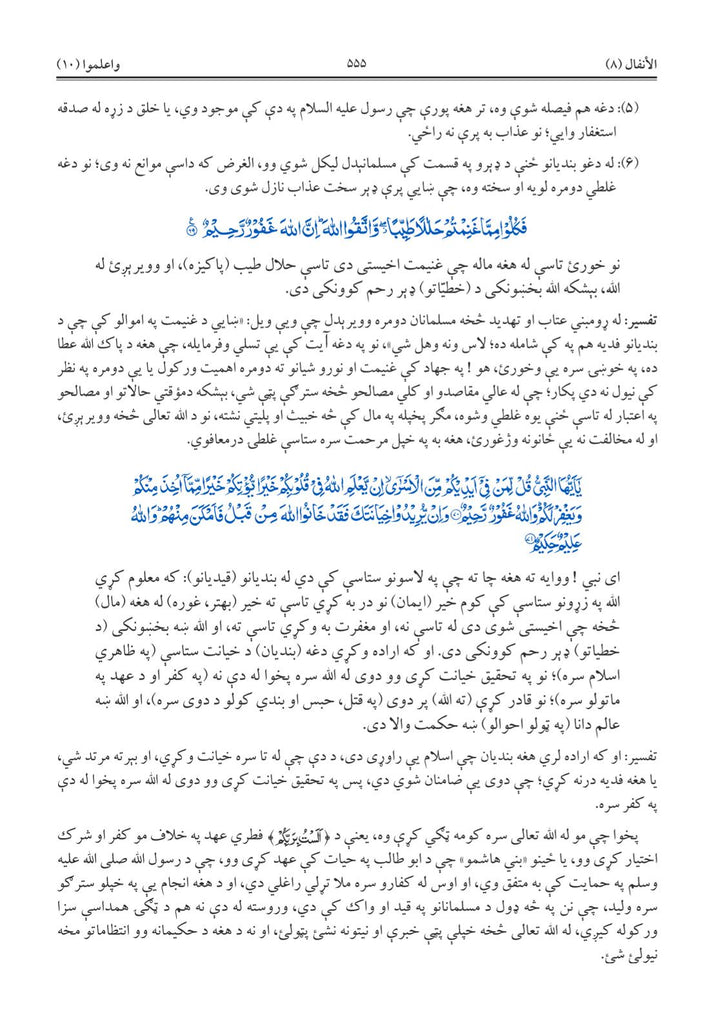 الأنفال (۸) ۵۵۵ واعلموا (۱۰)
(۵): دغه هم فیصله شوې وه، تر هغه پورې چې رسول علیه السلام په دې کې موجود وي، یا خلق د زړه له صدقه
استغفار وایي؛ نو عذاب به پرې نه راځي.
(۶): له دغو بندیانو ځنې د ډېرو په قسمت کې مسلمانېدل لیکل شوي وو، الغرض که داسې موانع نه وی؛ نو دغه
غلطي دومره لویه او سخته وه، چې ښایي پرې ډېر سخت عذاب نازل شوی وی.
فَكُلُوْا مِمَّا غَنِمْتُمْ حَلٰلًا طَيِّبًا ۖ وَّاتَّقُوا اللّٰهَ ۭ اِنَّ اللّٰهَ غَفُوْرٌ رَّحِيْمٌ ۶۹
نو خورئ تاسې له هغه ماله چې غنیمت اخیستی دی تاسې حلال طیب (پاکیزه)، او ووېرېږئ له
الله، بېشکه الله بخښونکی د (خطیّاتو) ډېر رحم کوونکی دی.
تفسیر: له ړومبني عتاب او تهدید څخه مسلمانان دومره ووېرېدل چې ویې ویل: «ښایي د غنیمت په اموالو کې چې د
بندیانو فدیه هم په کې شامله ده؛ لاس ونه وهل شي»، نو په دغه آیت کې یې تسلي وفرمایله، چې هغه د پاک الله عطا
ده، په خوښۍ سره یې وخورئ، هو ! په جهاد کې غنیمت او نورو شیانو ته دومره اهمیت ورکول یا یې دومره په نظر
کې نیول نه دي پکار؛ چې له عالي مقاصدو او کلي مصالحو څخه سترګې پټې شي، بېشکه دمؤقتي حالاتو او مصالحو
په اعتبار له تاسې ځنې یوه غلطي وشوه، مګر پخپله په مال کې څه خبیث او پلیتي نشته، نو د الله تعالی څخه ووېرېږئ،
او له مخالفت نه یې ځانونه وژغورئ، هغه به په خپل مرحمت سره ستاسې غلطي درمعافوي.
يٰٓاَيُّهَا النَّبِيُّ قُلْ لِّمَنْ فِيْٓ اَيْدِيْكُمْ مِّنَ الْاَسْرٰٓى ۙ اِنْ يَّعْلَمِ اللّٰهُ فِيْ قُلُوْبِكُمْ خَيْرًا يُّؤْتِكُمْ خَيْرًا مِّمَّآ اُخِذَ مِنْكُمْ
وَيَغْفِرْ لَكُمْ ۭ وَاللّٰهُ غَفُوْرٌ رَّحِيْمٌ ۷۰ وَاِنْ يُّرِيْدُوْا خِيَانَتَكَ فَقَدْ خَانُوا اللّٰهَ مِنْ قَبْلُ فَاَمْكَنَ مِنْهُمْ ۭ وَاللّٰهُ
عَلِيْمٌ حَكِيْمٌ ۷۱
ای نبي ! ووایه ته هغه چا ته چې په لاسونو ستاسې کې دي له بندیانو (قیدیانو): که معلوم کړي
الله په زړونو ستاسې کې کوم خیر (ایمان) نو در به کړي تاسې ته خیر (بهتر، غوره) له هغه (مال)
څخه چې اخیستی شوی دی له تاسې نه، او مغفرت به وکړي تاسې ته، او الله ښه بخښونکی (د
خطیاتو) ډېر رحم کوونکی دی. او که اراده وکړي دغه (بندیان) د خیانت ستاسې (په ظاهري
اسلام سره)؛ نو په تحقیق خیانت کړی وو دوی له الله سره پخوا له دې نه (په کفر او د عهد په
ماتولو سره)؛ نو قادر کړې (ته الله) پر دوی (په قتل، حبس او بندي کولو د دوی سره)، او الله ښه
عالم دانا (په ټولو احوالو) ښه حکمت والا دی.
تفسیر: او که اراده لري هغه بندیان چې اسلام یې راوړی دی، د دې چې له تا سره خیانت وکړي، او بېرته مرتد شي،
یا هغه فدیه درنه کړي؛ چې دوی یې ضامنان شوي دي، پس په تحقیق خیانت کړی وو دوی له الله سره پخوا له دې
په کفر سره.
پخوا چې مو له الله تعالی سره کومه ټګي کړې وه، یعنې د ﴿اَلَسْتُ بِرَبِّكُمْ﴾ فطري عهد په خلاف مو کفر او شرک
اختیار کړی وو، یا ځینو «بني هاشمو» چې د ابو طالب په حیات کې عهد کړی وو، چې د رسول الله صلی الله علیه
وسلم په حمایت کې به متفق وي، او اوس له کفارو سره ملا تړلې راغلي دي، او د هغه انجام یې په خپلو سترګو
سره ولید، چې نن په څه ډول د مسلمانانو په قید او واک کې دي، وروسته له دې نه هم د ټګۍ همداسې سزا
ورکوله کیږي، له الله تعالی څخه خپلې پټې خبرې او نیتونه نشئ پټولئ، او نه د هغه د حکیمانه وو انتظاماتو مخه
نیولئ شئ.